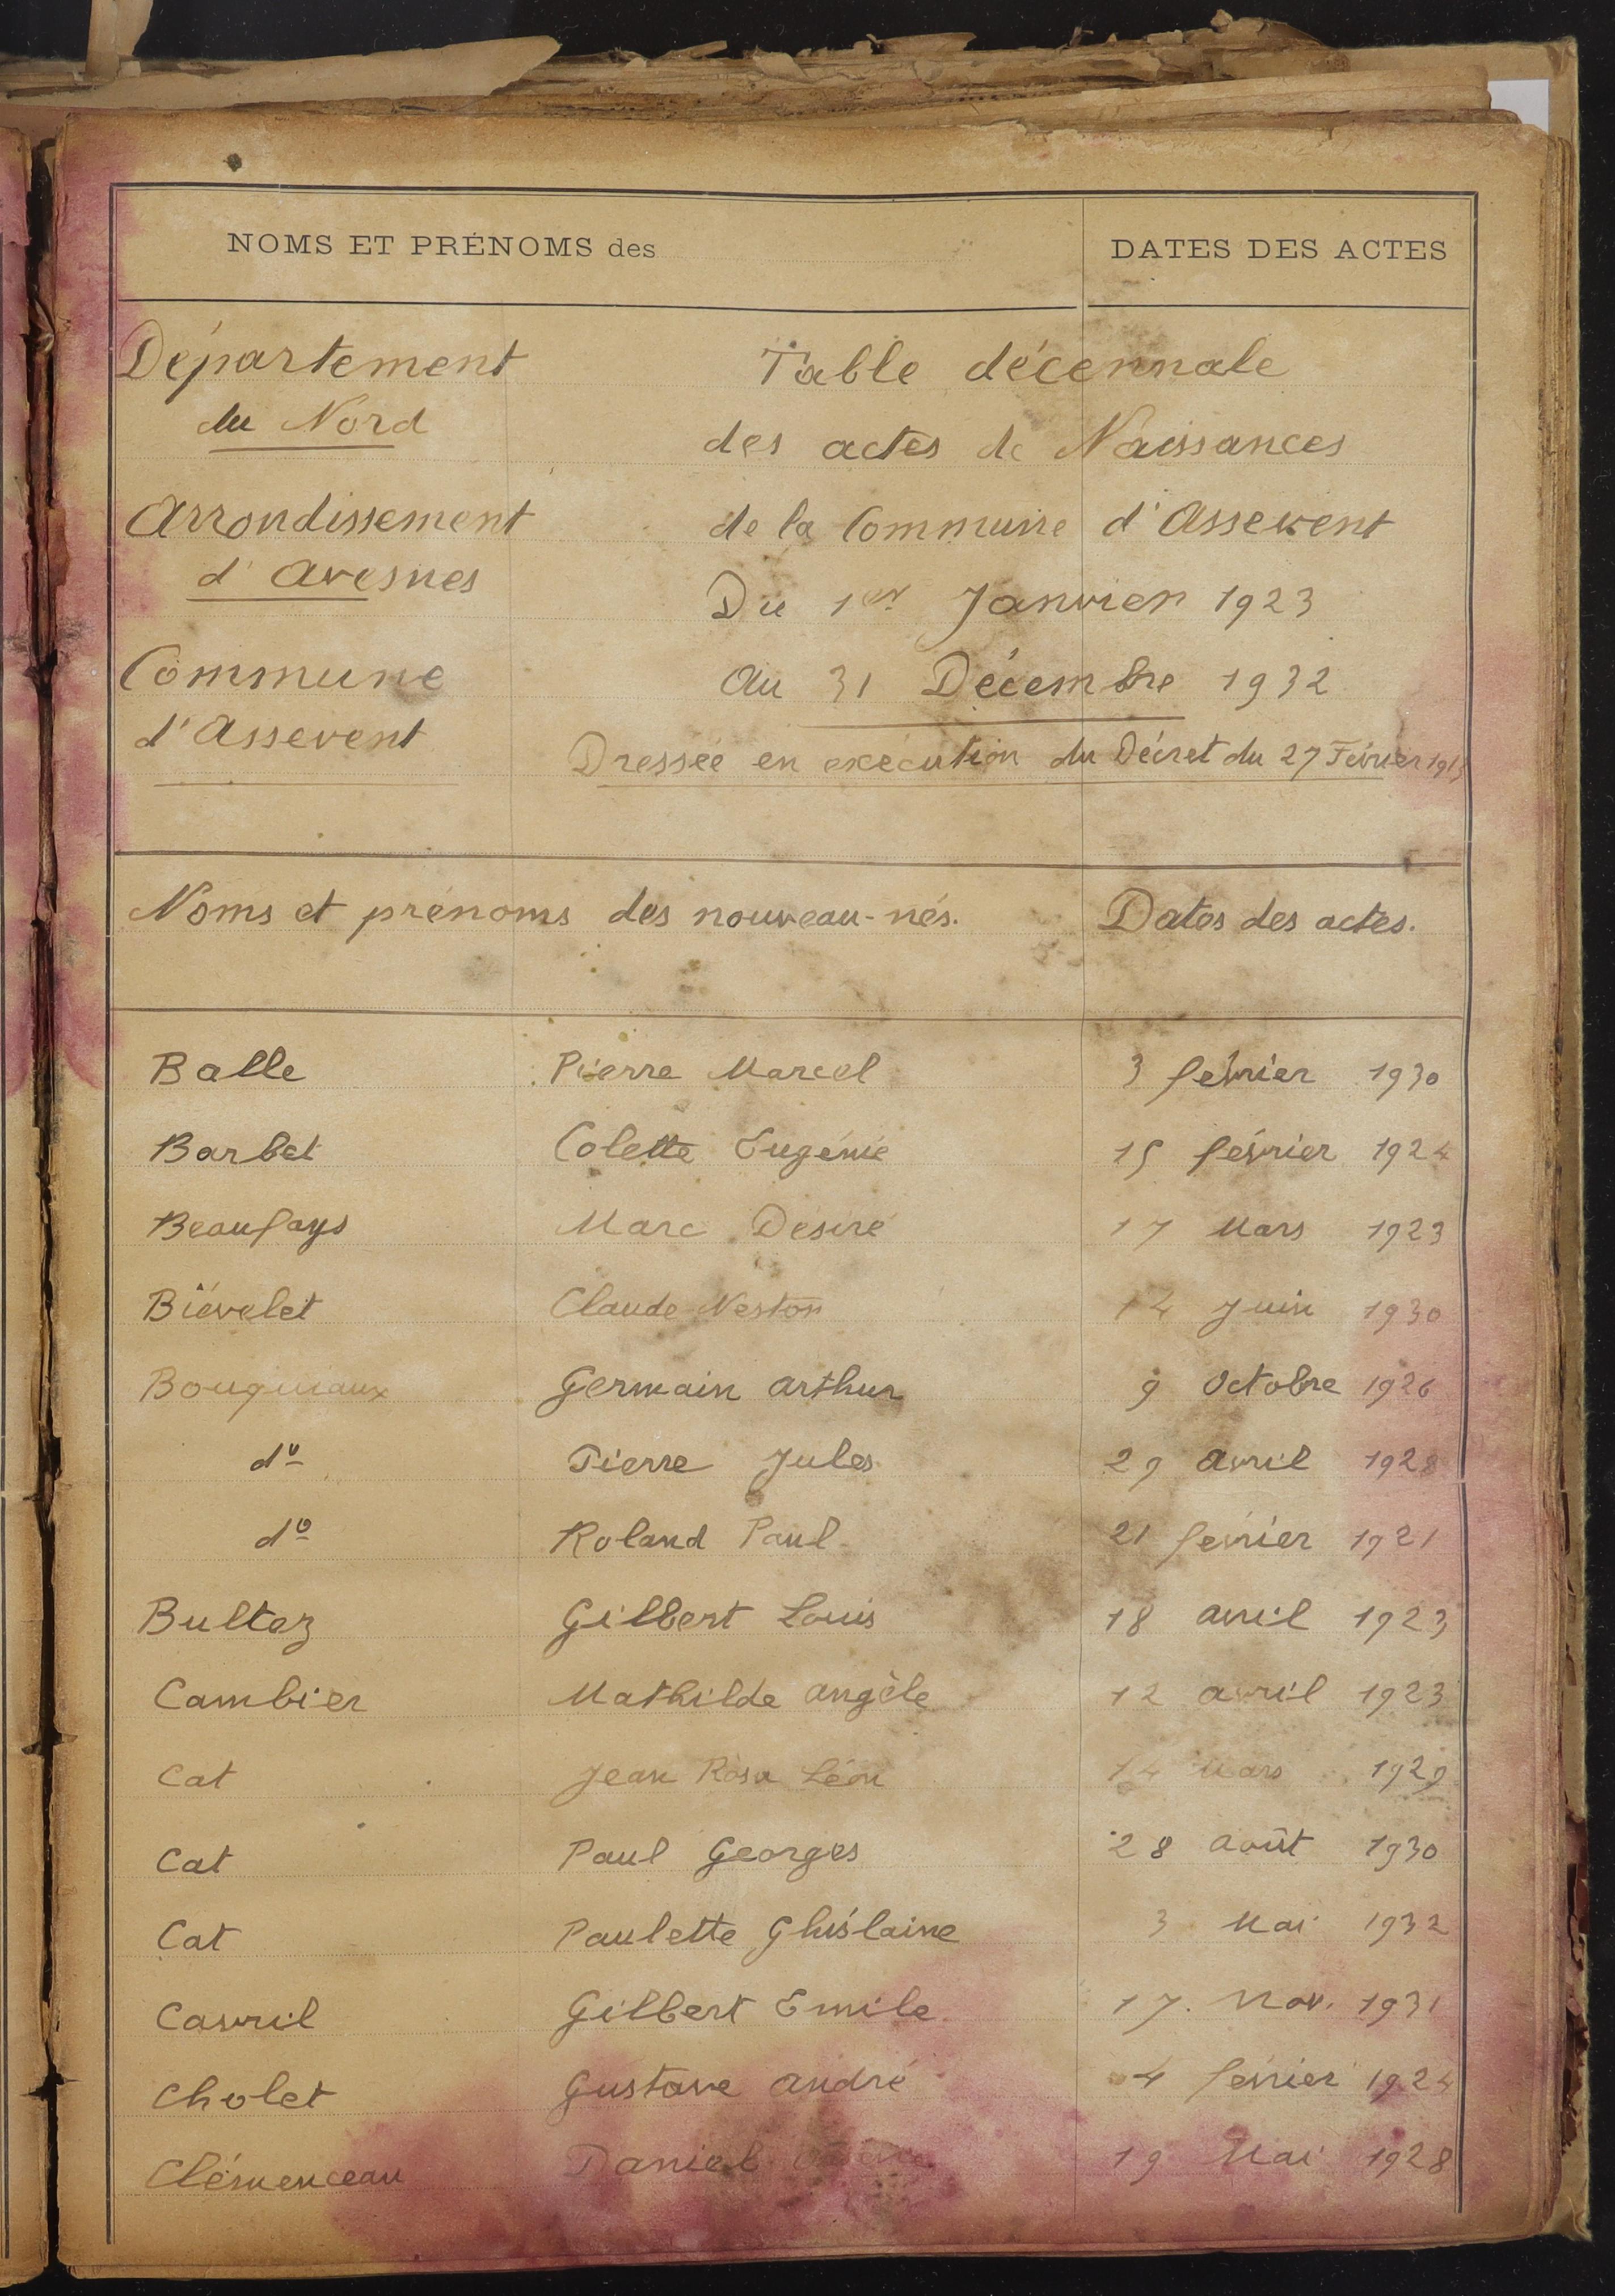 NOMS ET PRÉNOMS des DATES DES ACTES
Département
du Nord
Arrondissement
d'Avesnes
Commune
d'Assevent
Table décennale
des actes de Naissances
de la Commune d'Assevent
Du 1er Janvier 1923
au 31 Décembre 1932
Dressée en exécution du Décret du 27 Février
Noms et prénoms des nouveau-nés. Dates des actes.
Balle Pierre Marcel 3 février 1930
Barbet Colette Eugénie 15 février 1924
Beaufays Marc Désiré 17 Mars 1923
Biévelet Claude Nestor 14 Juin 1930
Bouguiaux Germain Arthur 9 Octobre 1926
do Pierre Jules 29 avril 1928
do Roland Paul 21 février 1921
Bultez Gilbert Louis 18 avril 1923
Cambier Mathilde Angèle 12 avril 1923
Cat Jean Rosa Léon 14 Mars 1929
Cat Paul Georges 28 août 1930
Cat Paulette Ghislaine 3 Mai 1932
Cavril Gilbert Emile 17. Nov. 1931
Cholet Gustave André 4 février 1924
Clémenceau Daniel 19 Mai 1928